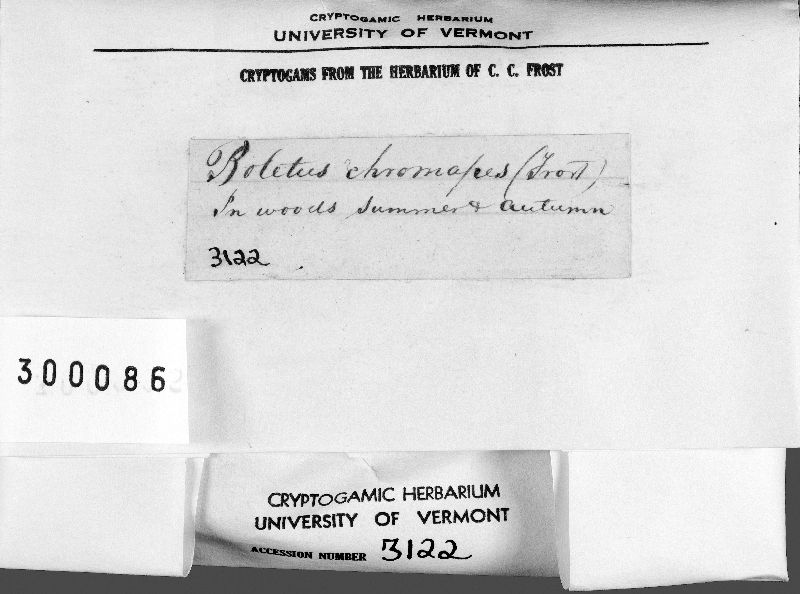 CRYPTOGAMIC HERBARIUM
UNIVERSITY OF VERMONT
CRYPTOGAMS FROM THE HERBARIUM OF C. C. FROST
Boletus chromapes (Frost)
In woods summer & autumn
3122
300086
CRYPTOGAMIC HERBARIUM
UNIVERSITY OF VERMONT
ACCESSION NUMBER 3122